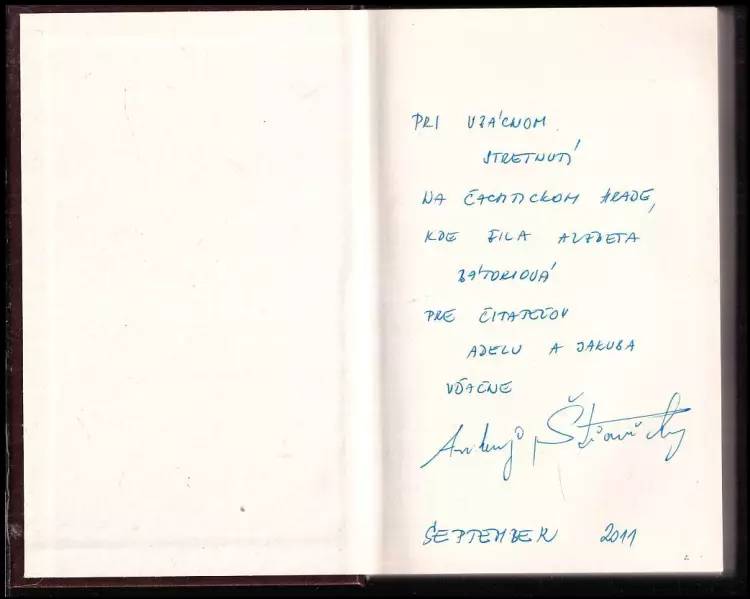 PRI VZÁCNOM
STRETNUTÍ
NA ČACHTICKOM HRADE,
KDE ŽILA ALŽBETA
BÁTORIOVÁ
PRE ČITATEĽOV
ADELU A JAKUBA
VĎAČNE
Andrej Štiavnický
SEPTEMBER 2011